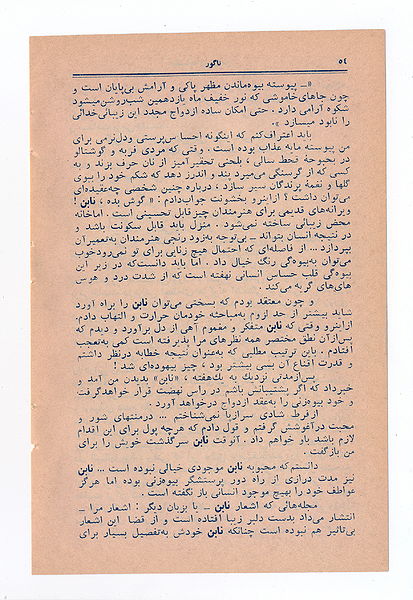 ٥٤
تاگور
«ـ پیوسته بیوه‌ماندن مظهر پاکی و آرامش بی‌پایان است و
چون جاهای خاموشی که نور خفیف ماه یازدهمین شب روشن میشود
شکوه آرامی دارد. حتی امکان ساده ازدواج مجدد این زیبائی خدائی
را نابود میسازد».
باید اعتراف کنم که اینگونه احساس پرستی ودل‌نرمی برای
من پیوسته مایه عذاب بوده است. وقتی که مردی فربه و گوشتالو
در بحبوحهٔ قحط سالی، بلحنی تحقیرآمیز از نان حرف بزند و به
کسی که از گرسنگی می‌میرد پند و اندرز دهد که شکم خود را ببوی
گلها و نغمهٔ پرندگان سیر سازد، درباره چنین شخصی چه‌عقیده‌ای
می‌توان داشت؟ ازاینرو بخشونت جواب‌دادم: «گوش بده، نابن!
ویرانه‌های قدیمی برای هنرمندان چیز قابل تحسینی است. اماخانه
محض زیبائی ساخته نمی‌شود. منزل باید قابل سکونت باشد و
در نتیجه انسان بتواند ـ بی‌توجه به‌زود رنجی هنرمندان به‌تعمیرآن
بپردازد... از فاصله‌ای که احتمال هیچ زیانی برای تو نمی‌رودخوب
می‌توان به‌بیوه‌گی رنگ خیال داد. اما باید دانست‌که در زیر این
بیوه‌گی قلب حساس انسانی نهفته است که از شدت درد و هوس
های‌های گریه می‌کند.
و چون معتقد بودم که بسختی می‌توان نابن را براه آورد
شاید بیشتر از حد لزوم به‌مباحثه خودمان حرارت و التهاب دادم.
ازاینرو وقتی که نابن متفکر و مغموم آهی از دل برآورد و دیدم که
پس‌ازآن نطق مختصر همه نظرهای مرا پذیرفته است کمی به‌تعجب
افتادم. باین ترتیب مطلبی که به‌عنوان نتیجه خطابه درنظر داشتم
و قدرت اقناع آن بسی بیشتر بود، چیز بیهوده‌ای شد!
پس‌ازمدتی نزدیك به یك‌هفته، «نابن» بدیدن من آمد و
خبرداد که اگر پشتیبانش باشم در راس نهضت قرار خواهدگرفت
و خود بیوه‌زنی را به‌عقد ازدواج درخواهد آورد.
ازفرط شادی سرازپا نمی‌شناختم... درمنتهای شور و
محبت درآغوشش گرفتم و قول دادم که هرچه پول برای این اقدام
لازم باشد باو خواهم داد. آنوقت نابن سرگذشت خویش را برای
من بازگفت.
دانستم که محبوبه نابن موجودی خیالی نبوده است... نابن
نیز مدت درازی از راه دور پرستشگر بیوه‌زنی بوده اما هرگز
عواطف خود را بهیچ موجود انسانی باز نگفته است.
مجله‌هائی که اشعار نابن ـ یا بزبان دیگر: اشعار مرا ـ
انتشار می‌داد بدست دلبر زیبا افتاده است و از قضا این اشعار
بی‌تاثیر هم نبوده است چنانکه نابن خودش به‌تفصیل بسیار برای